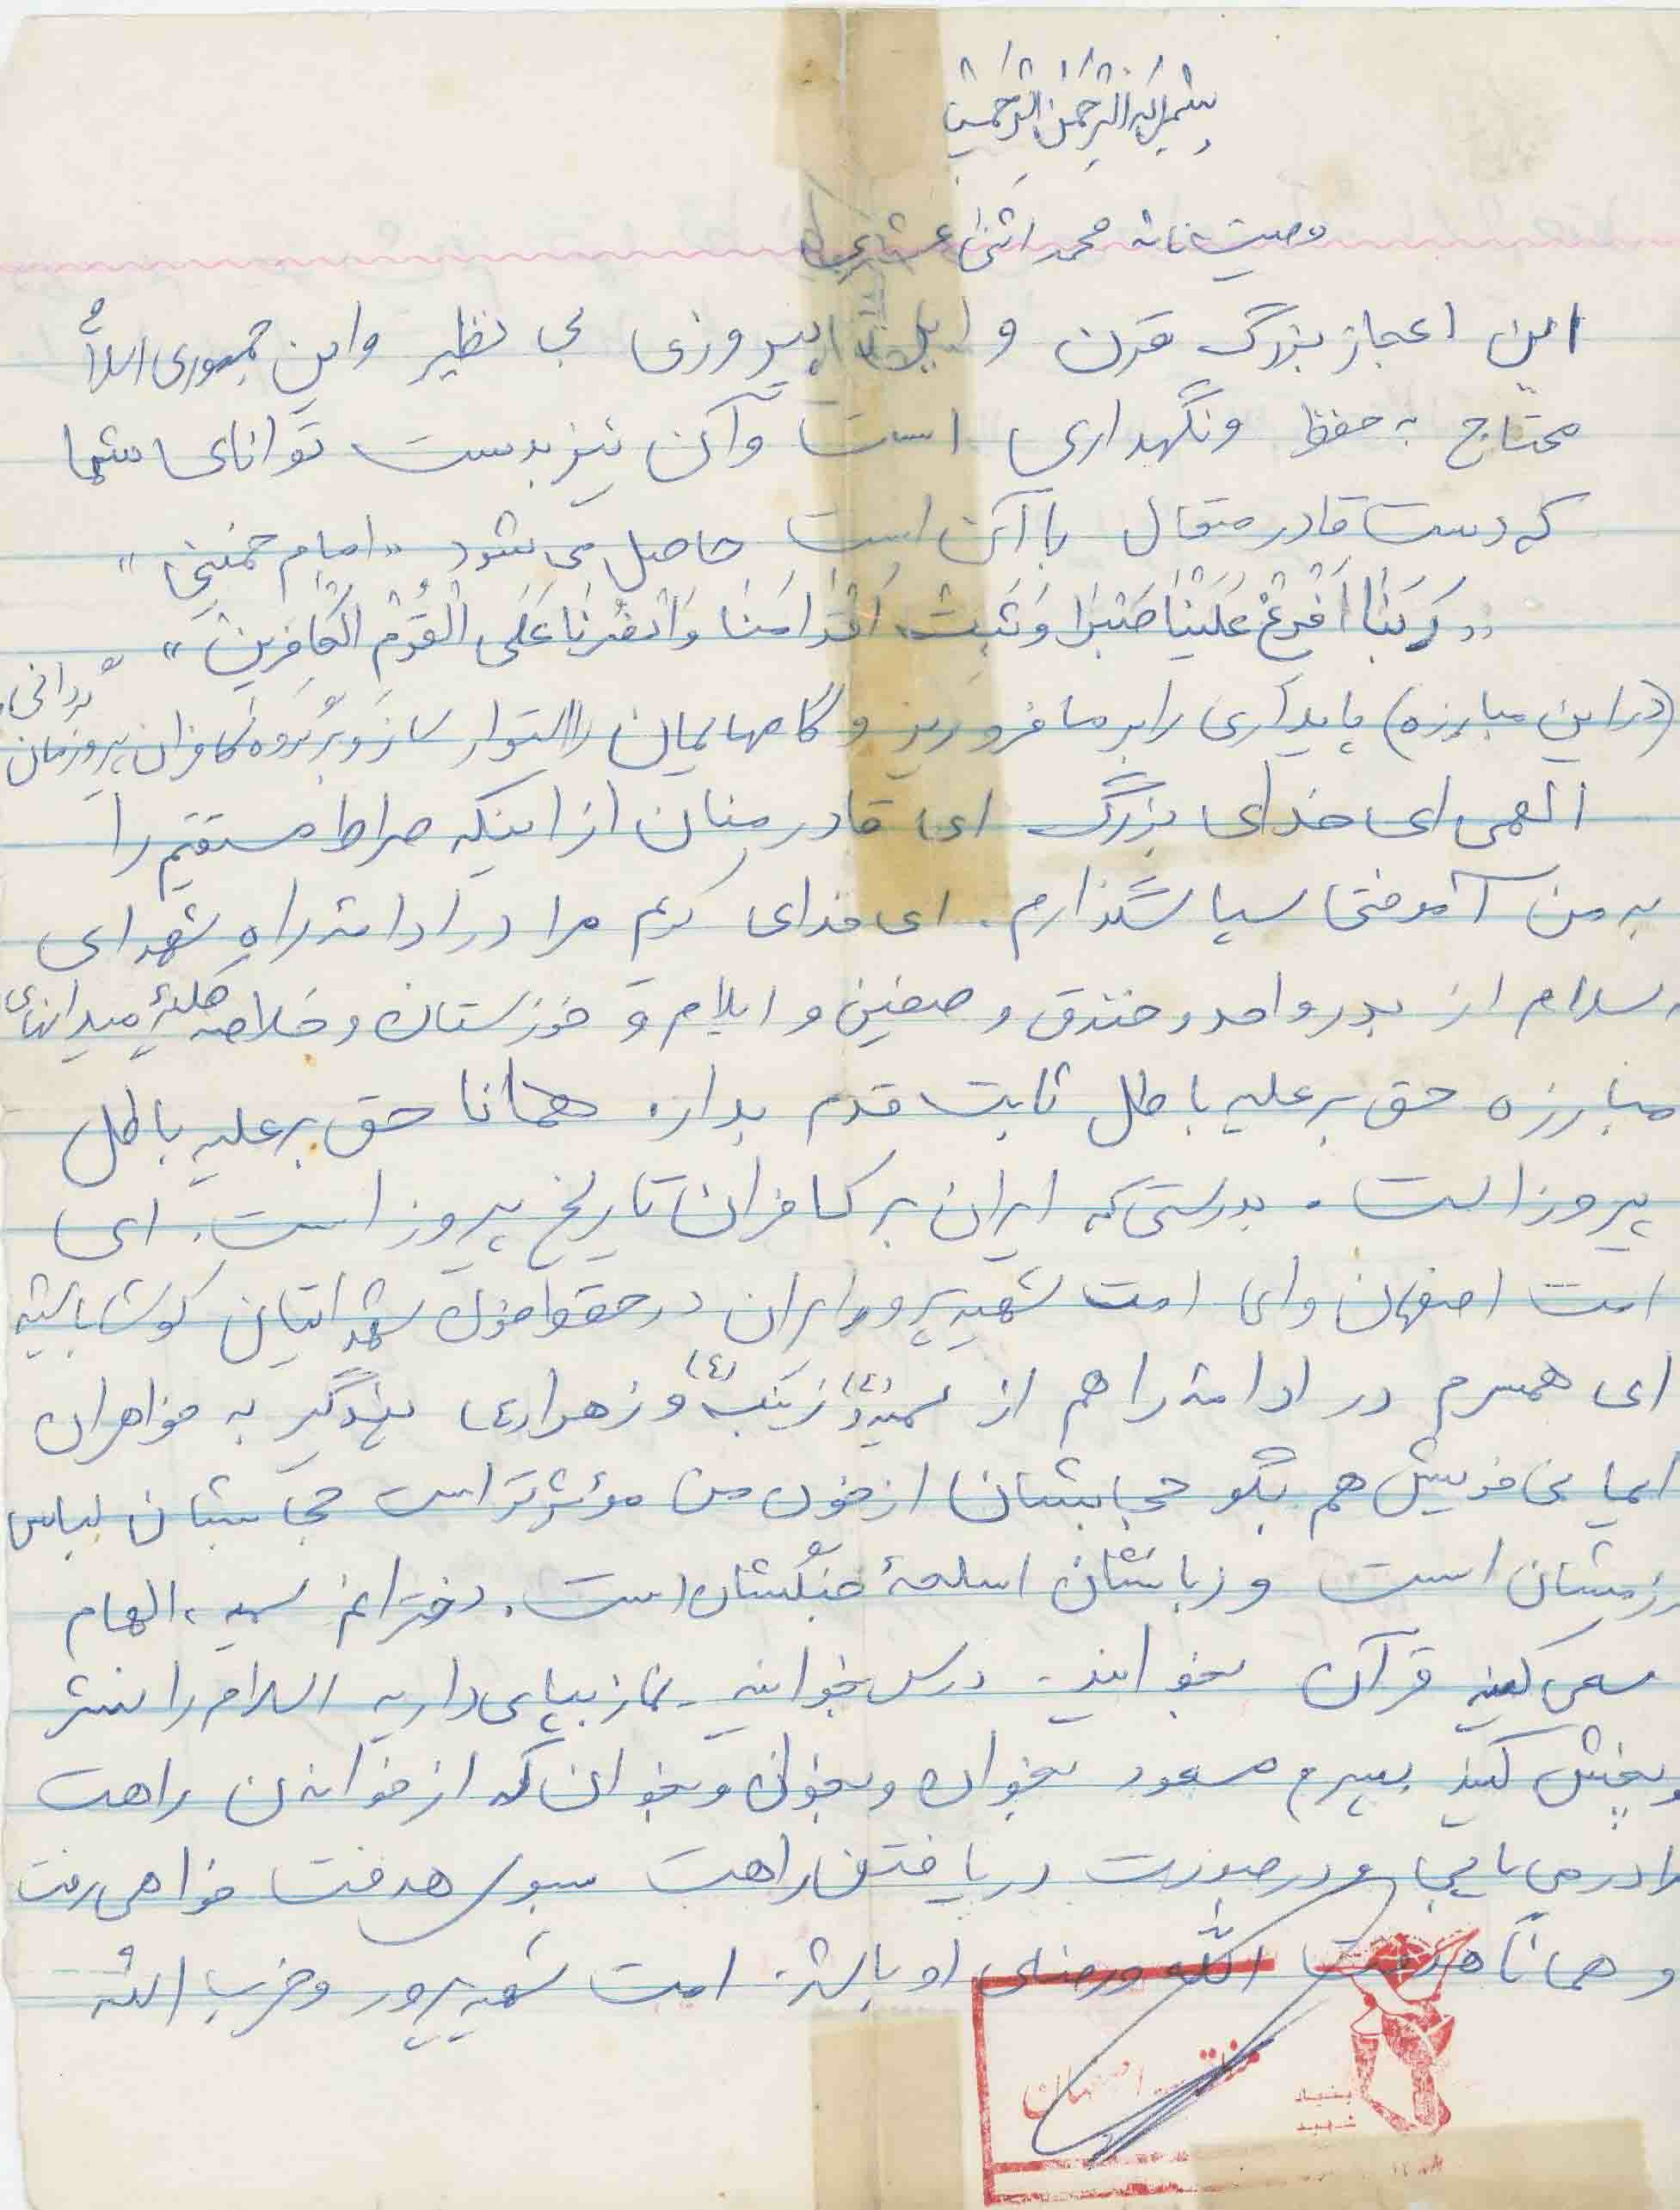 بسم الله الرحمن الرحیم
وصیت نامه محمد اثنی عشری
این اعجاز بزرگ قرن و این پیروزی بی نظیر و این جمهوری اسلامی
محتاج به حفظ و نگهداری است و آن نیز بدست توانای شما
که دست قادر متعال با آن است حاصل می شود «امام خمینی»
«رَبَّنا اَفْرِغْ عَلَیْنا صَبْراً وَ ثَبِّتْ اَقْدامَنا وَ انْصُرْنا عَلَی الْقَوْمِ الْکافِرینَ»
(در این مبارزه) پایداری را بر ما فرو ریز و گامهایمان را استوار ساز و بر گروه کافران پیروزمان گردانی
الهی ای خدای بزرگ ای قادر منان از اینکه صراط مستقیم را
به من آموختی سپاسگذارم. ای خدای کریم مرا در ادامه راه شهدای
اسلام از بدر و احد و خندق و صفین و ایلام و خوزستان و خلاصه کلیهٔ میدانهای
مبارزه حق بر علیه باطل ثابت قدم بدار. همانا حق بر علیه باطل
پیروز است. بدرستی که ایران بر کافران تاریخ پیروز است. ای
امت اصفهان و ای امت شهید پرور ایران در حفظ خون شهدایتان کوشا باشید
ای همسرم در ادامه راهم از سمیه (ع) و زینب (ع) و زهرا (ع) پند گیر به خواهران
ایمانی خویش هم بگو حجابشان از خون من مؤثرتر است حجابشان لباس
رزمشان است و زبانشان اسلحهٔ جنگشان است. دخترانم سمیه، الهام
سعی کنید قرآن بخوانید. درس بخوانید. نماز بپای دارید اسلام را نشر
و پخش کنید پسرم مسعود بخوان و بخوان و بخوان که از خواندن راهت
را در می یابی و در صورت دریافتن راهت سوی هدفت خواهی رفت
و همانا هدفت الله و رضای او باشد. امت شهید پرور و حزب الله
بنیاد
شهید
منطقه اصفهان